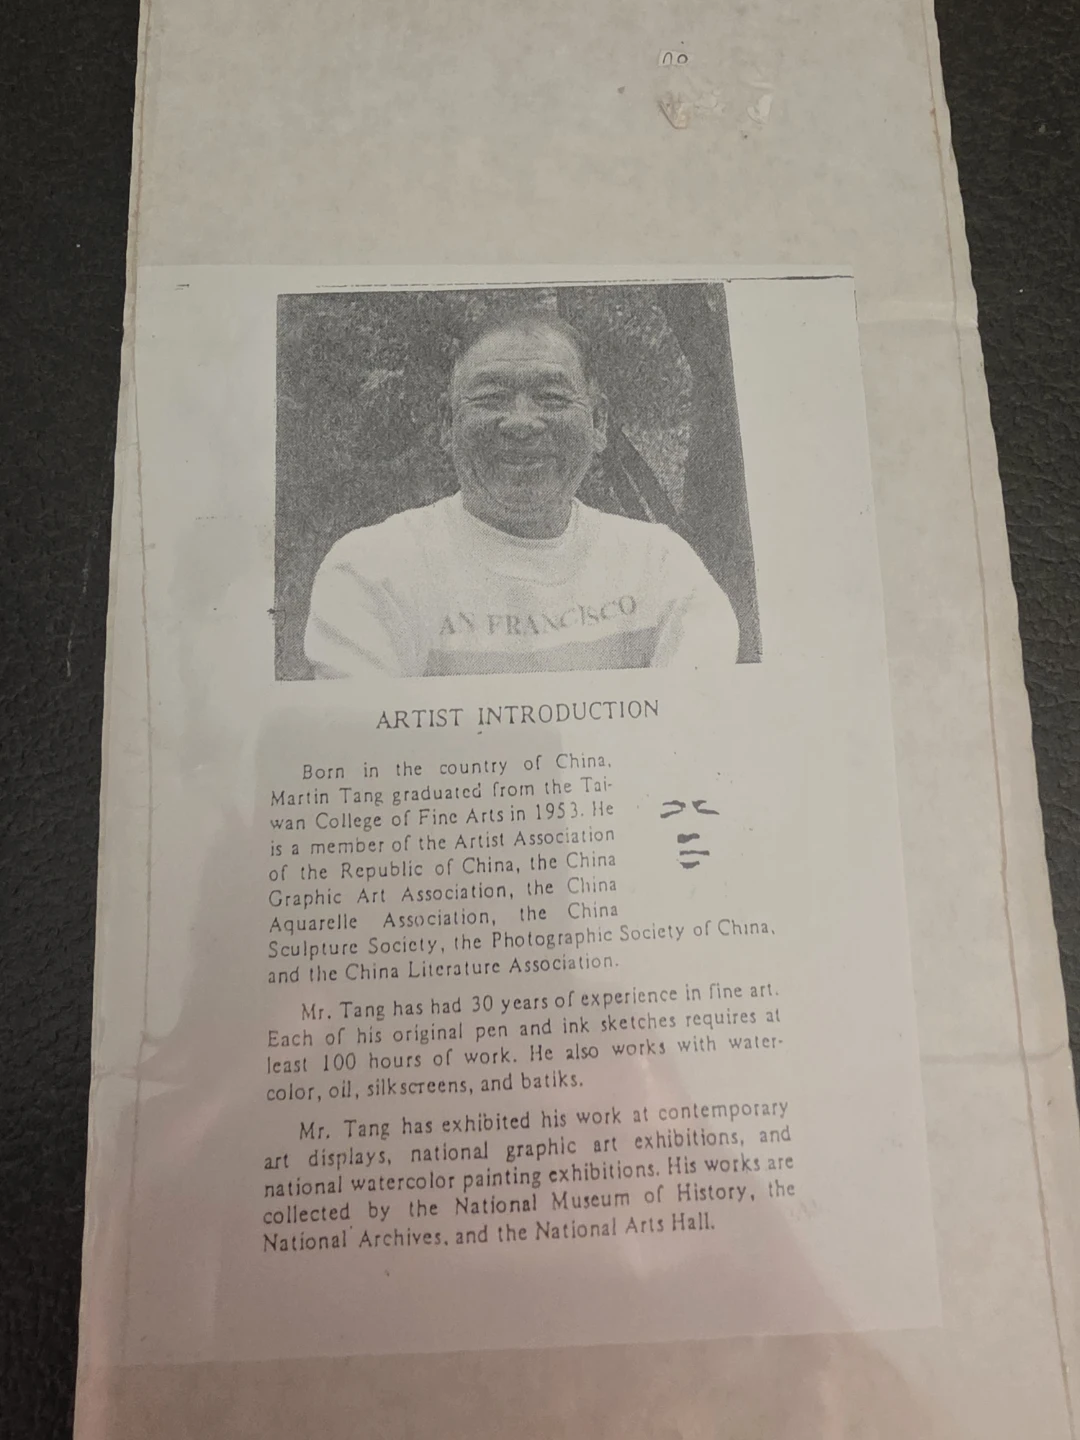 no
AN FRANCISCO
ARTIST INTRODUCTION
Born in the country of China,
Martin Tang graduated from the Tai-
wan College of Fine Arts in 1953. He
is a member of the Artist Association
of the Republic of China, the China
Graphic Art Association, the China
Aquarelle Association, the China
Sculpture Society, the Photographic Society of China,
and the China Literature Association.
Mr. Tang has had 30 years of experience in fine art.
Each of his original pen and ink sketches requires at
least 100 hours of work. He also works with water-
color, oil, silkscreens, and batiks.
Mr. Tang has exhibited his work at contemporary
art displays, national graphic art exhibitions, and
national watercolor painting exhibitions. His works are
collected by the National Museum of History, the
National Archives, and the National Arts Hall.